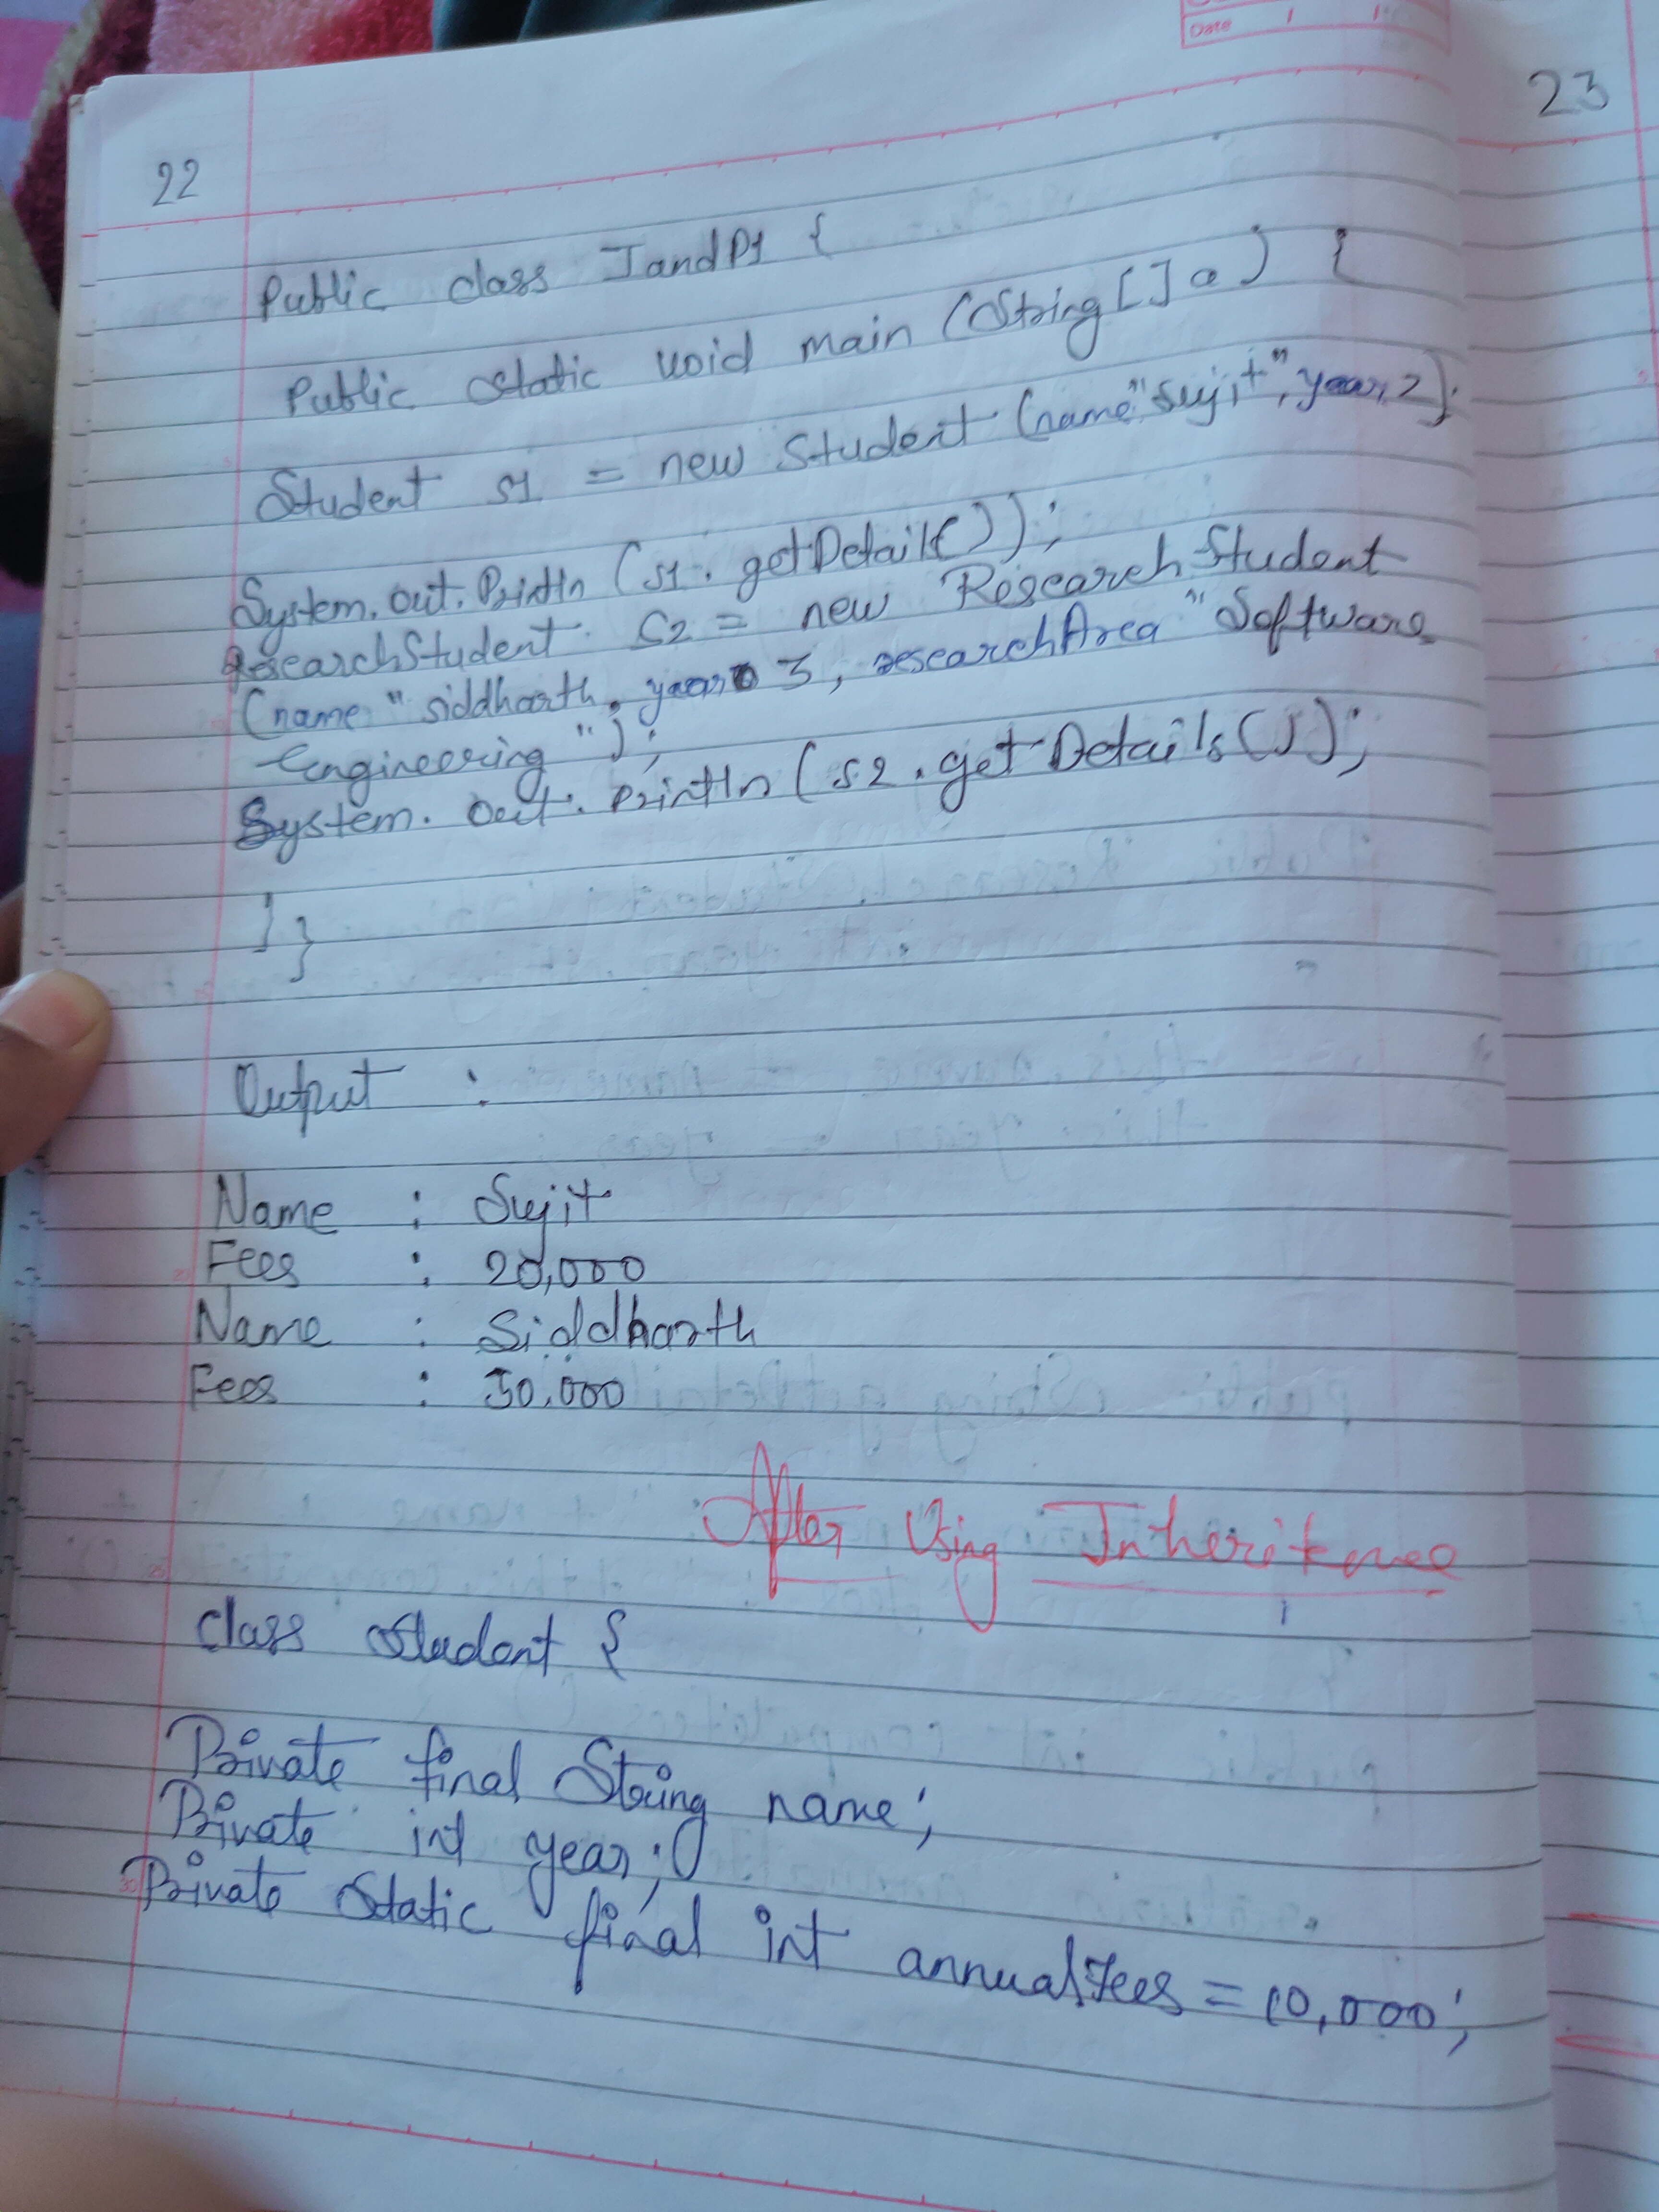 Date / /
22
23
Public class IandP1 {
Public static void main (String[] a) {
Student s1 = new Student (name "Sujit", year, 2);
System.out.Println (s1.getDetails());
ResearchStudent S2 = new ResearchStudent
(name "siddharth, year 3, researchArea "Software
Engineering");
System.out.println (s2.getDetails());
}}
Output :
Name : Sujit
Fees : 20,000
Name : Siddharth
Fees : 50,000
After Using Inheritence
class Student {
Private final String name;
Private int year;
Private static final int annualFees = 10,000;